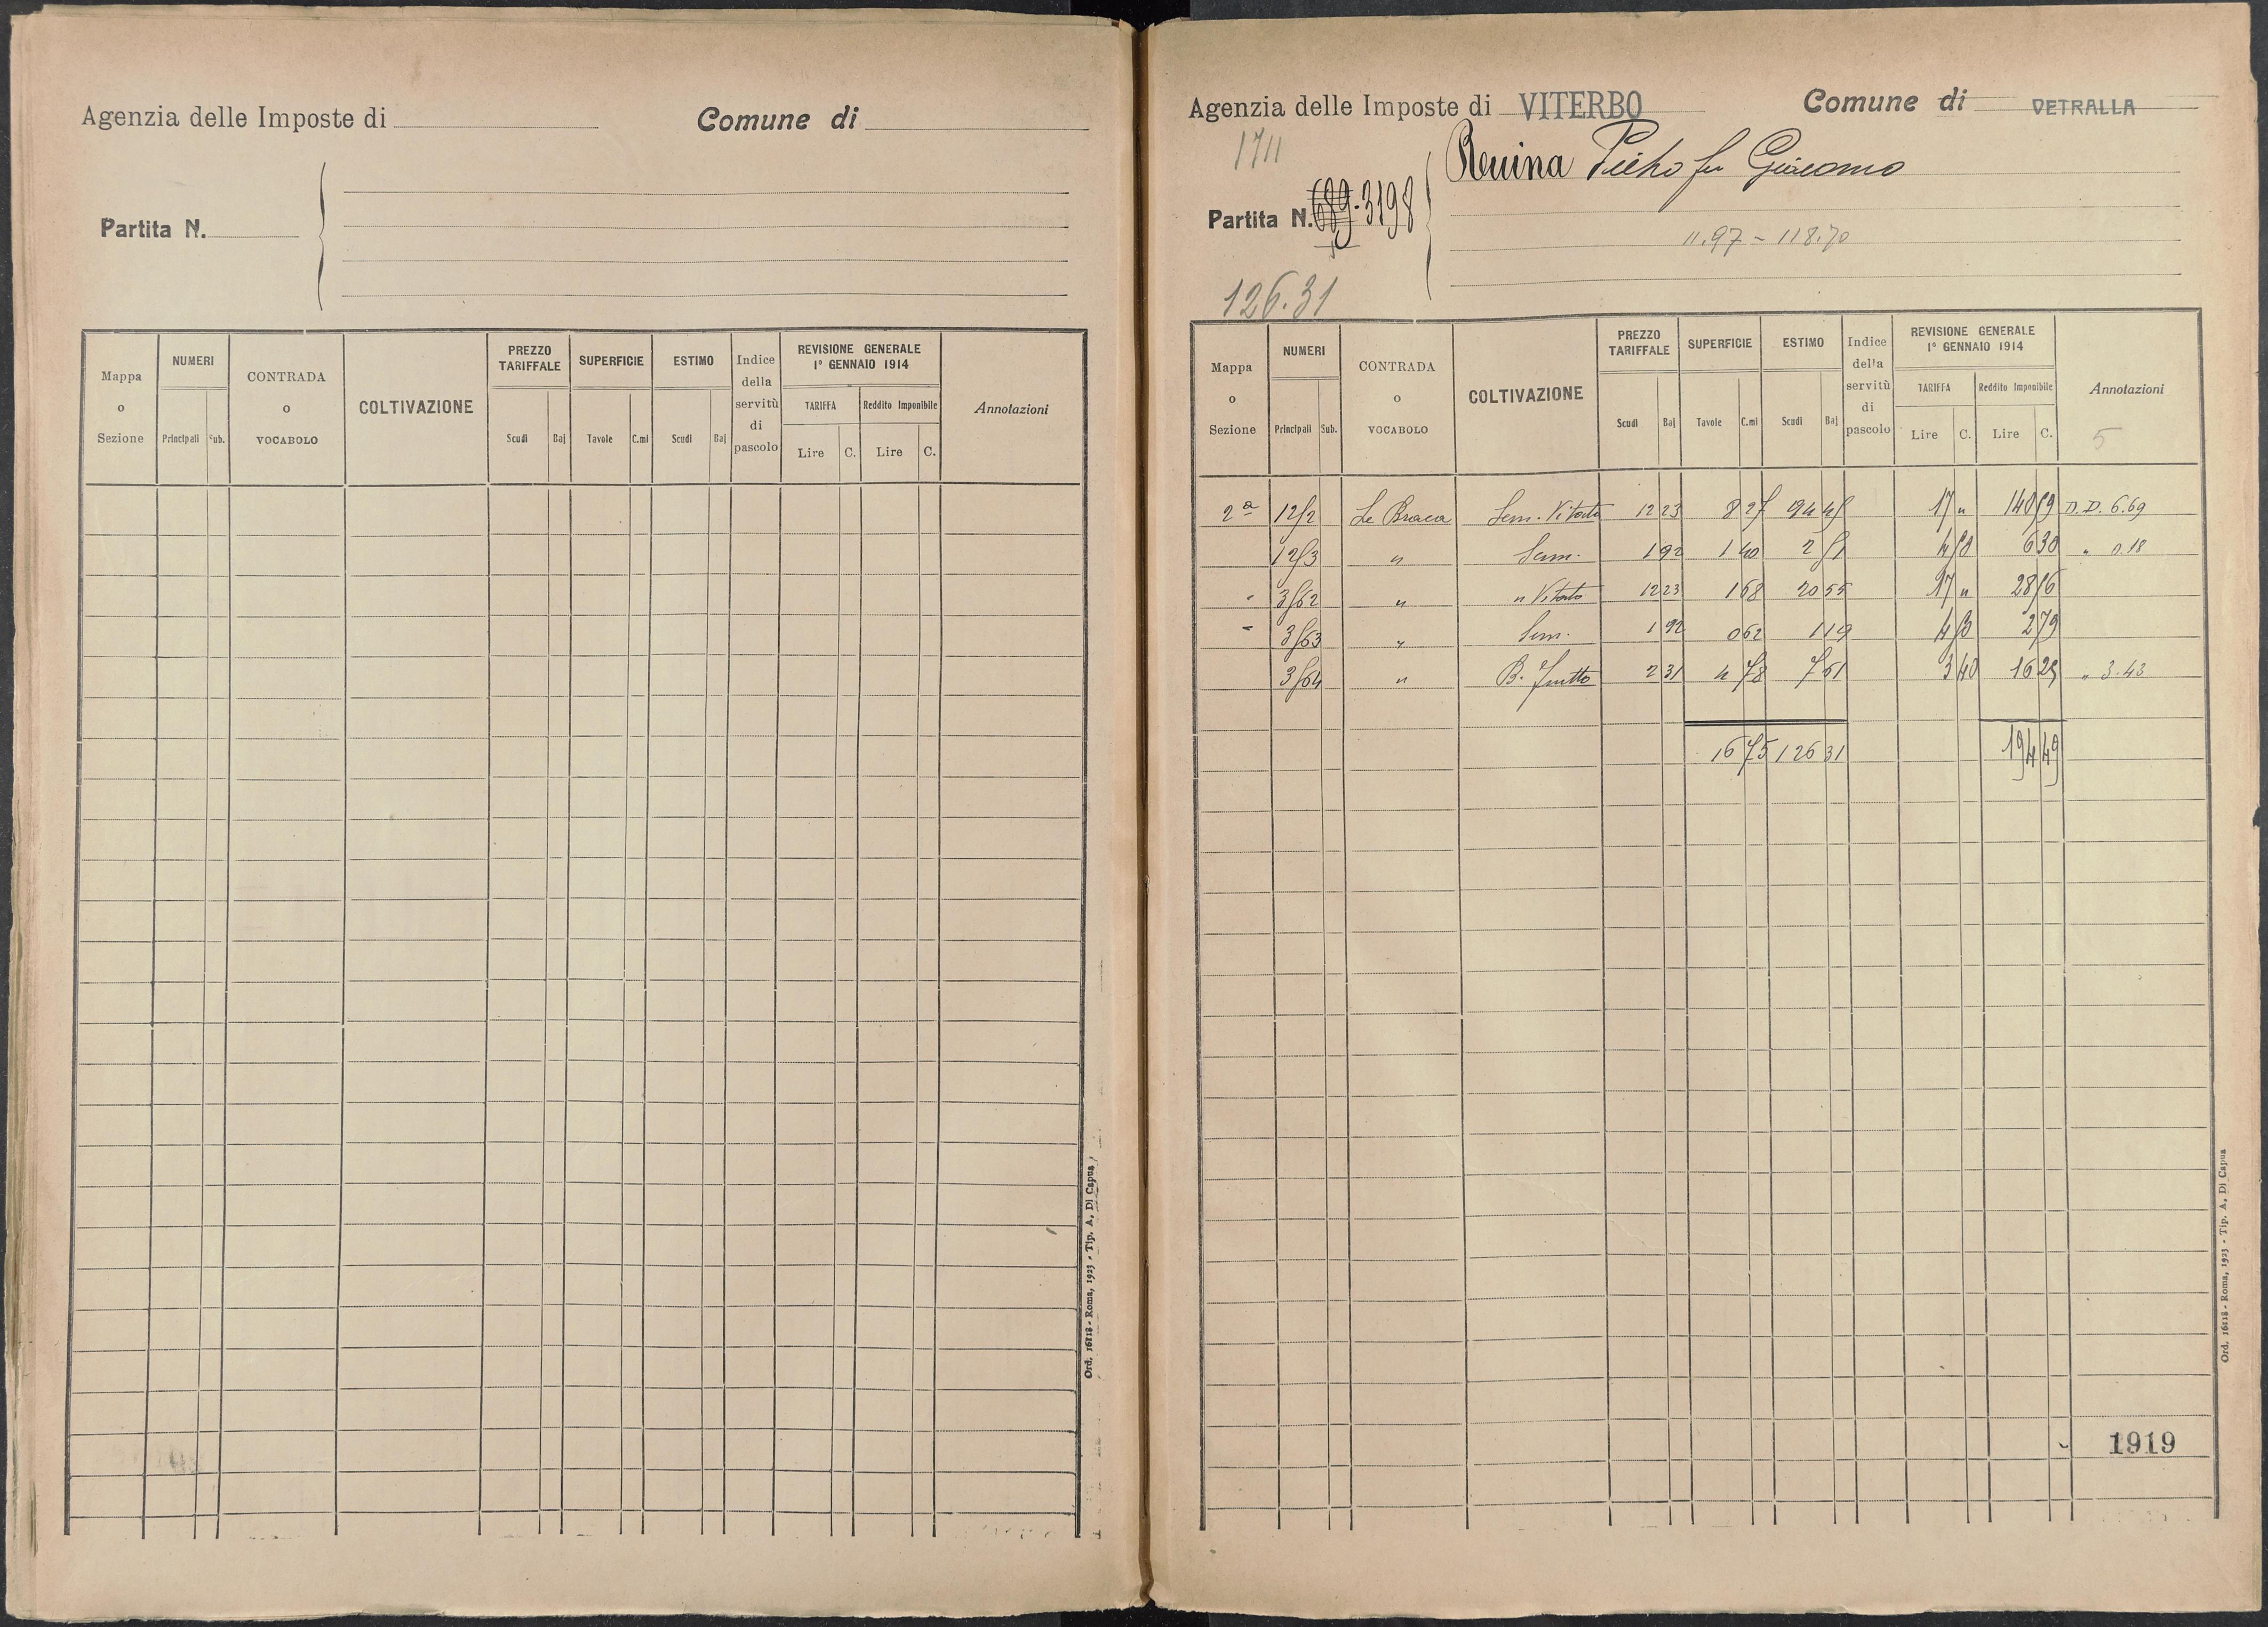 Agenzia delle Imposte di
Comune di
Partita N.
Mappa o Sezione
NUMERI
Principali Sub.
CONTRADA o VOCABOLO
COLTIVAZIONE
PREZZO TARIFFALE
Scudi Baj
SUPERFICIE
Tavole C.mi
ESTIMO
Scudi Baj
Indice della servitù di pascolo
REVISIONE GENERALE 1° GENNAIO 1914
TARIFFA
Lire C.
Reddito Imponibile
Lire C.
Annotazioni
Ord. 16118 - Roma, 1923 - Tip. A. Di Capua
Agenzia delle Imposte di VITERBO
Comune di VETRALLA
1711
Pietro fu Giacomo
Partita N. 689 - 3198
11.97 - 118.70
126.31
Mappa o Sezione
NUMERI
Principali Sub.
CONTRADA o VOCABOLO
COLTIVAZIONE
PREZZO TARIFFALE
Scudi Baj
SUPERFICIE
Tavole C.mi
ESTIMO
Scudi Baj
Indice della servitù di pascolo
REVISIONE GENERALE 1° GENNAIO 1914
TARIFFA
Lire C.
Reddito Imponibile
Lire C.
Annotazioni
5
2a Sem. Vitato 12 23 8 27 17 " 140 59 D.D. 6.69
" Sem. 1 92 1 40 4 50 6 30 " 0.18
" " Vitato 12 23 1 68 20 55 17 " 28 56
" Sem. 1 92 0 62 1 19 4 50 2 79
" B. 2 31 4 78 3 40 16 25 " 3.43
16 75 126 31 194 49
1919
Ord. 16118 - Roma, 1923 - Tip. A. Di Capua